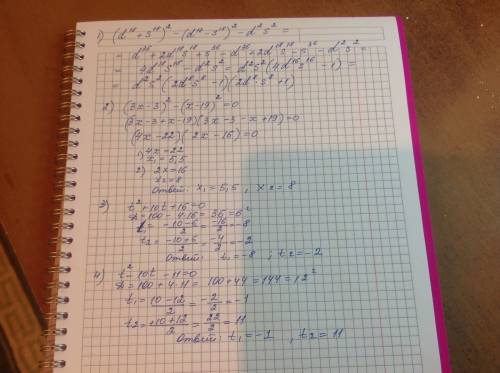 1) (d¹⁸ + s¹⁸)² − (d¹⁸ − s¹⁸)² − d²s² =
= d³⁶ + 2d¹⁸s¹⁸ + s³⁶ − d³⁶ + 2d¹⁸s¹⁸ − s³⁶ − d²s² =
= 4d¹⁸s¹⁸ − d²s² = d²s²(4d¹⁶s¹⁶ − 1) =
= d²s²(2d⁸s⁸ − 1)(2d⁸s⁸ + 1)
2) (3x − 3)² − (x − 19)² = 0
(3x − 3 + x − 19)(3x − 3 − x + 19) = 0
(4x − 22)(2x − 16) = 0
1) 4x = 22
x₁ = 5,5
2) 2x = 16
x₂ = 8
Ответ: x₁ = 5,5 , x₂ = 8
3) t² + 10t + 16 = 0
D = 100 − 4·16 = 36 = 6²
t₁ = (−10−6)/2 = −16/2 = −8
t₂ = (−10+6)/2 = −4/2 = −2
Ответ: t₁ = −8 , t₂ = −2
4) t² − 10t − 11 = 0
D = 100 + 4·11 = 100 + 44 = 144 = 12²
t₁ = (10−12)/2 = −2/2 = −1
t₂ = (+10+12)/2 = 22/2 = 11
Ответ: t₁ = −1 , t₂ = 11